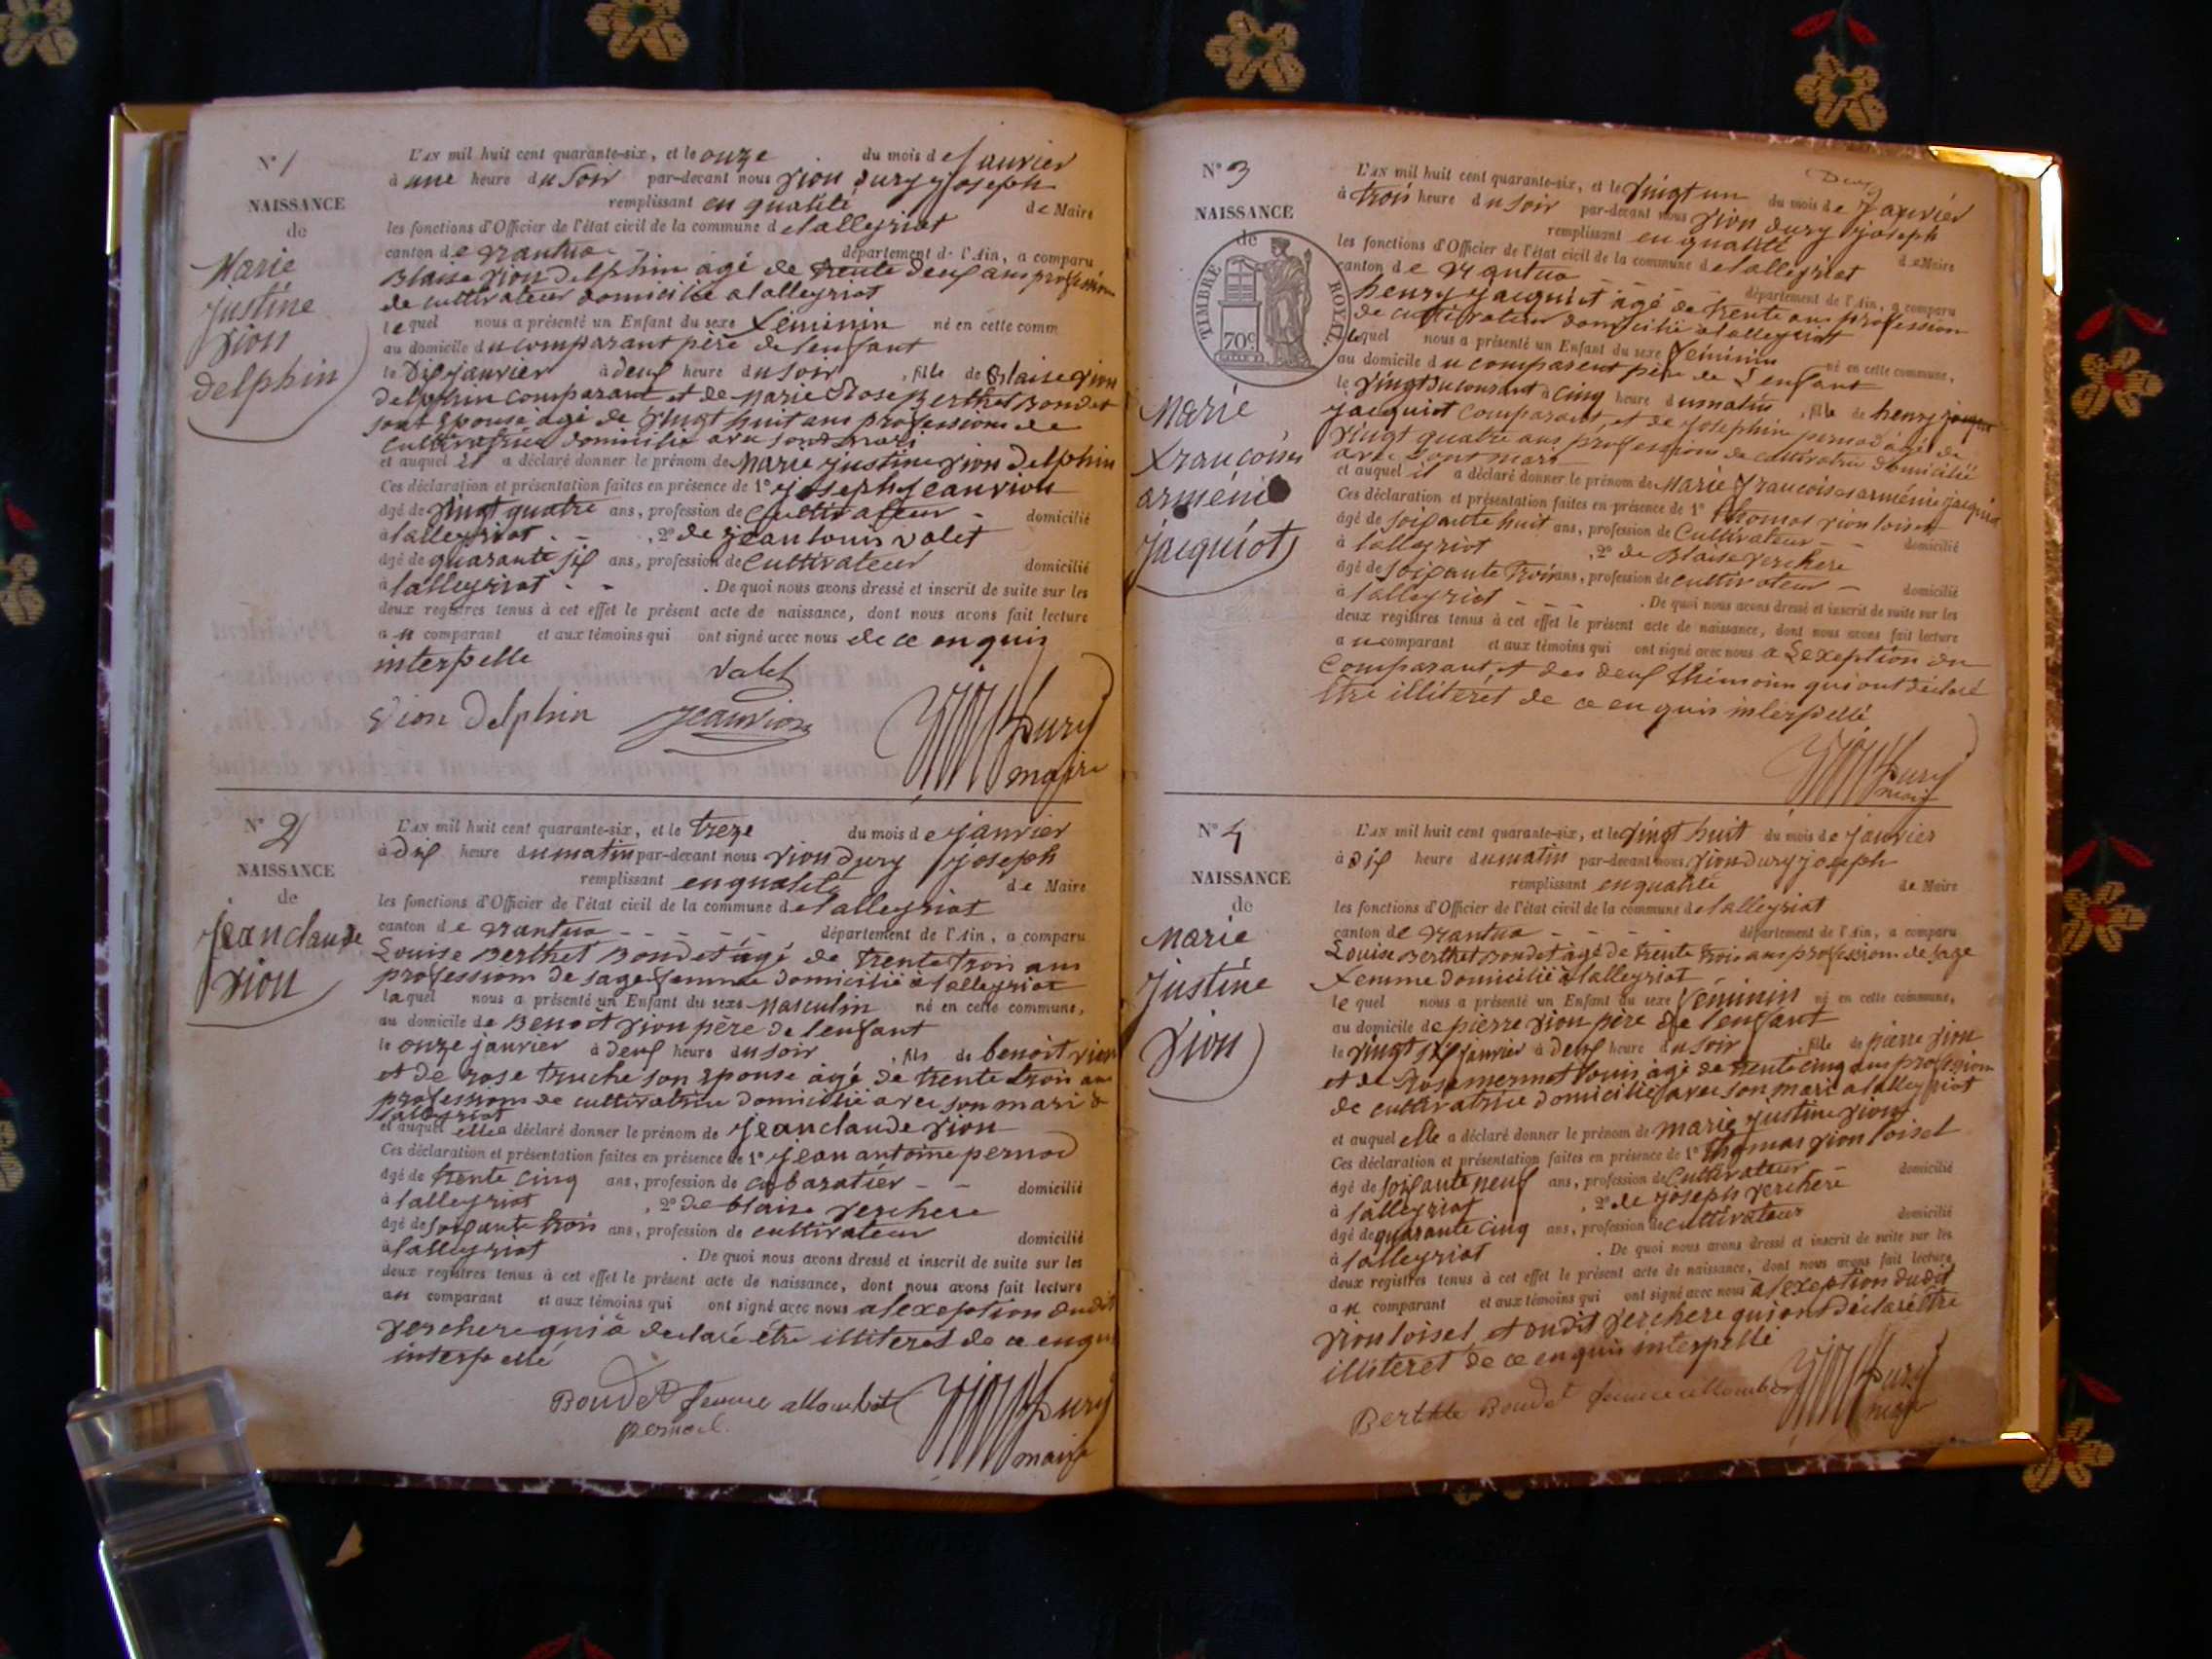 N° 1
NAISSANCE
de
Marie
justine
Vion
delphin
L'AN mil huit cent quarante-six, et le onze du mois de janvier
à une heure du soir par-devant nous Vion Dury joseph
remplissant en qualité de Maire
les fonctions d'Officier de l'état civil de la commune de lalleyriat
canton de nantua département de l'Ain, a comparu
Blaise Vion Delphin âgé de trente deux ans profession
de cultivateur domicilié a lalleyriat
lequel nous a présenté un Enfant du sexe féminin né en cette comm
au domicile du comparant père de lenfant
le dix janvier à deux heure du soir, fille de Blaise Vion
Delphin comparant et de Marie Rose Berthet Bondet
sont Epouse agé de vingt huit ans profession de
cultivatrice domicilié avec sont mari
et auquel il a déclaré donner le prénom de Marie justine Vion Delphin
Ces déclaration et présentation faites en présence de 1° joseph jeanvion
âgé de vingt quatre ans, profession de Cultivateur domicilié
à lalleyriat, 2° de jean louis valet
âgé de quarante six ans, profession de Cultivateur domicilié
à lalleyriat. De quoi nous avons dressé et inscrit de suite sur les
deux registres tenus à cet effet le présent acte de naissance, dont nous avons fait lecture
au comparant et aux témoins qui ont signé avec nous de ce enquis
interpelle
Valet
Vion Delphin jeanvion Vion Dury
maire
N° 2
NAISSANCE
de
jean claude
Vion
L'AN mil huit cent quarante-six, et le treze du mois de janvier
à dix heure du matin par-devant nous Vion Dury joseph
remplissant en qualité de Maire
les fonctions d'Officier de l'état civil de la commune de lalleyriat
canton de nantua département de l'Ain, a comparu
Louise Berthet Bondet âgé de trente trois ans
profession de sage femme domicilié à lalleyriat
laquel nous a présenté un Enfant du sexe Masculin né en cette commune,
au domicile de Benoit Vion père de lenfant
le onze janvier à deux heure du soir, fils de benoit Vion
et de rose truche son Epouse âgé de trente trois ans
profession de cultivatrice domicilié avec son mari a
lalleyriat
et auquel elle a déclaré donner le prénom de jean claude Vion
Ces déclaration et présentation faites en présence de 1° jean antoine pernod
âgé de trente cinq ans, profession de cabaratier domicilié
à lalleyriat, 2° de blaise Verchere
âgé de soixante trois ans, profession de cultivateur domicilié
à lalleyriat. De quoi nous avons dressé et inscrit de suite sur les
deux registres tenus à cet effet le présent acte de naissance, dont nous avons fait lecture
au comparant et aux témoins qui ont signé avec nous a lexeption dudit
Verchere qui à declaré être illiteret de ce enquis
interpellé
Boudet femme allombert Vion Dury
pernod maire
N° 3
NAISSANCE
de
TIMBRE ROYAL
70c
Marie
francoise
arménie
jacquiot
Deux
L'AN mil huit cent quarante-six, et le vingt un du mois de janvier
à trois heure du soir par-devant nous Vion Dury joseph
remplissant en qualité de Maire
les fonctions d'Officier de l'état civil de la commune de lalleyriat
canton de nantua département de l'Ain, a comparu
henry jacquiot âgé de trente ans profession
de cultivateur domicilié a lalleyriat
lequel nous a présenté un Enfant du sexe féminin né en cette commune,
au domicile du comparent père de Lenfant
le vingt du courant à cinq heure du matin, fille de henry
jacquiot comparant, et de josephine pernod âgé de
vingt quatre ans profession de cultivatrice domicilié
avec sont mari
et auquel il a déclaré donner le prénom de Marie francoise arménie jacquiot
Ces déclaration et présentation faites en présence de 1° thomas vion loisel
âgé de soixante huit ans, profession de Cultivateur domicilié
à lalleyriat, 2° de Blaise Verchere
âgé de soixante trois ans, profession de cultivateur domicilié
à lalleyriat. De quoi nous avons dressé et inscrit de suite sur les
deux registres tenus à cet effet le présent acte de naissance, dont nous avons fait lecture
au comparant et aux témoins qui ont signé avec nous a Lexeption du
Comparant, et des deux thémoins qui ont déclaré
être illiteret de ce enquis interpellé
Vion Dury
maire
N° 4
NAISSANCE
de
Marie
justine
Vion
L'AN mil huit cent quarante-six, et le vingt huit du mois de janvier
à dix heure du matin par-devant nous Vion Dury joseph
remplissant en qualité de Maire
les fonctions d'Officier de l'état civil de la commune de lalleyriat
canton de nantua département de l'Ain, a comparu
Louise Berthet Bondet âgé de trente trois ans profession de sage
femme domicilié à lalleyriat
lequel nous a présenté un Enfant du sexe féminin né en cette commune,
au domicile de pierre Vion père de lenfant
le vingt six janvier à deux heure du soir, fille de pierre Vion
et de Rose mermet louis âgé de trente cinq ans profession
de cultivatrice domicilié avec son mari a lalleyriat
et auquel elle a déclaré donner le prénom de marie justine Vion
Ces déclaration et présentation faites en présence de 1° thomas vion loisel
âgé de soixante neuf ans, profession de Cultivateur domicilié
à lalleyriat, 2° de joseph Verchere
âgé de quarante cinq ans, profession de cultivateur domicilié
à lalleyriat. De quoi nous avons dressé et inscrit de suite sur les
deux registres tenus à cet effet le présent acte de naissance, dont nous avons fait lecture
au comparant et aux témoins qui ont signé avec nous a lexeption dudit
Vion loisel et dudit Verchere qui ont déclaré être
illiteret de ce enquis interpellé
Berthte Boudet femme allombert Vion Dury
maire